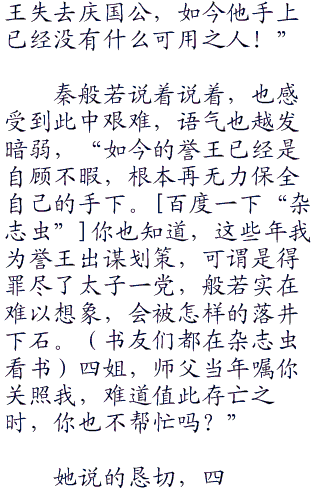 王失去庆国公，如今他手上
已经没有什么可用之人！”
秦般若说着说着，也感
受到此中艰难，语气也越发
暗弱，“如今的誉王已经是
自顾不暇，根本再无力保全
自己的手下。[百度一下“杂
志虫”]你也知道，这些年我
为誉王出谋划策，可谓是得
罪尽了太子一党，般若实在
难以想象，会被怎样的落井
下石。（书友们都在杂志虫
看书）四姐，师父当年嘱你
关照我，难道值此存亡之
时，你也不帮忙吗？”
她说的恳切，四